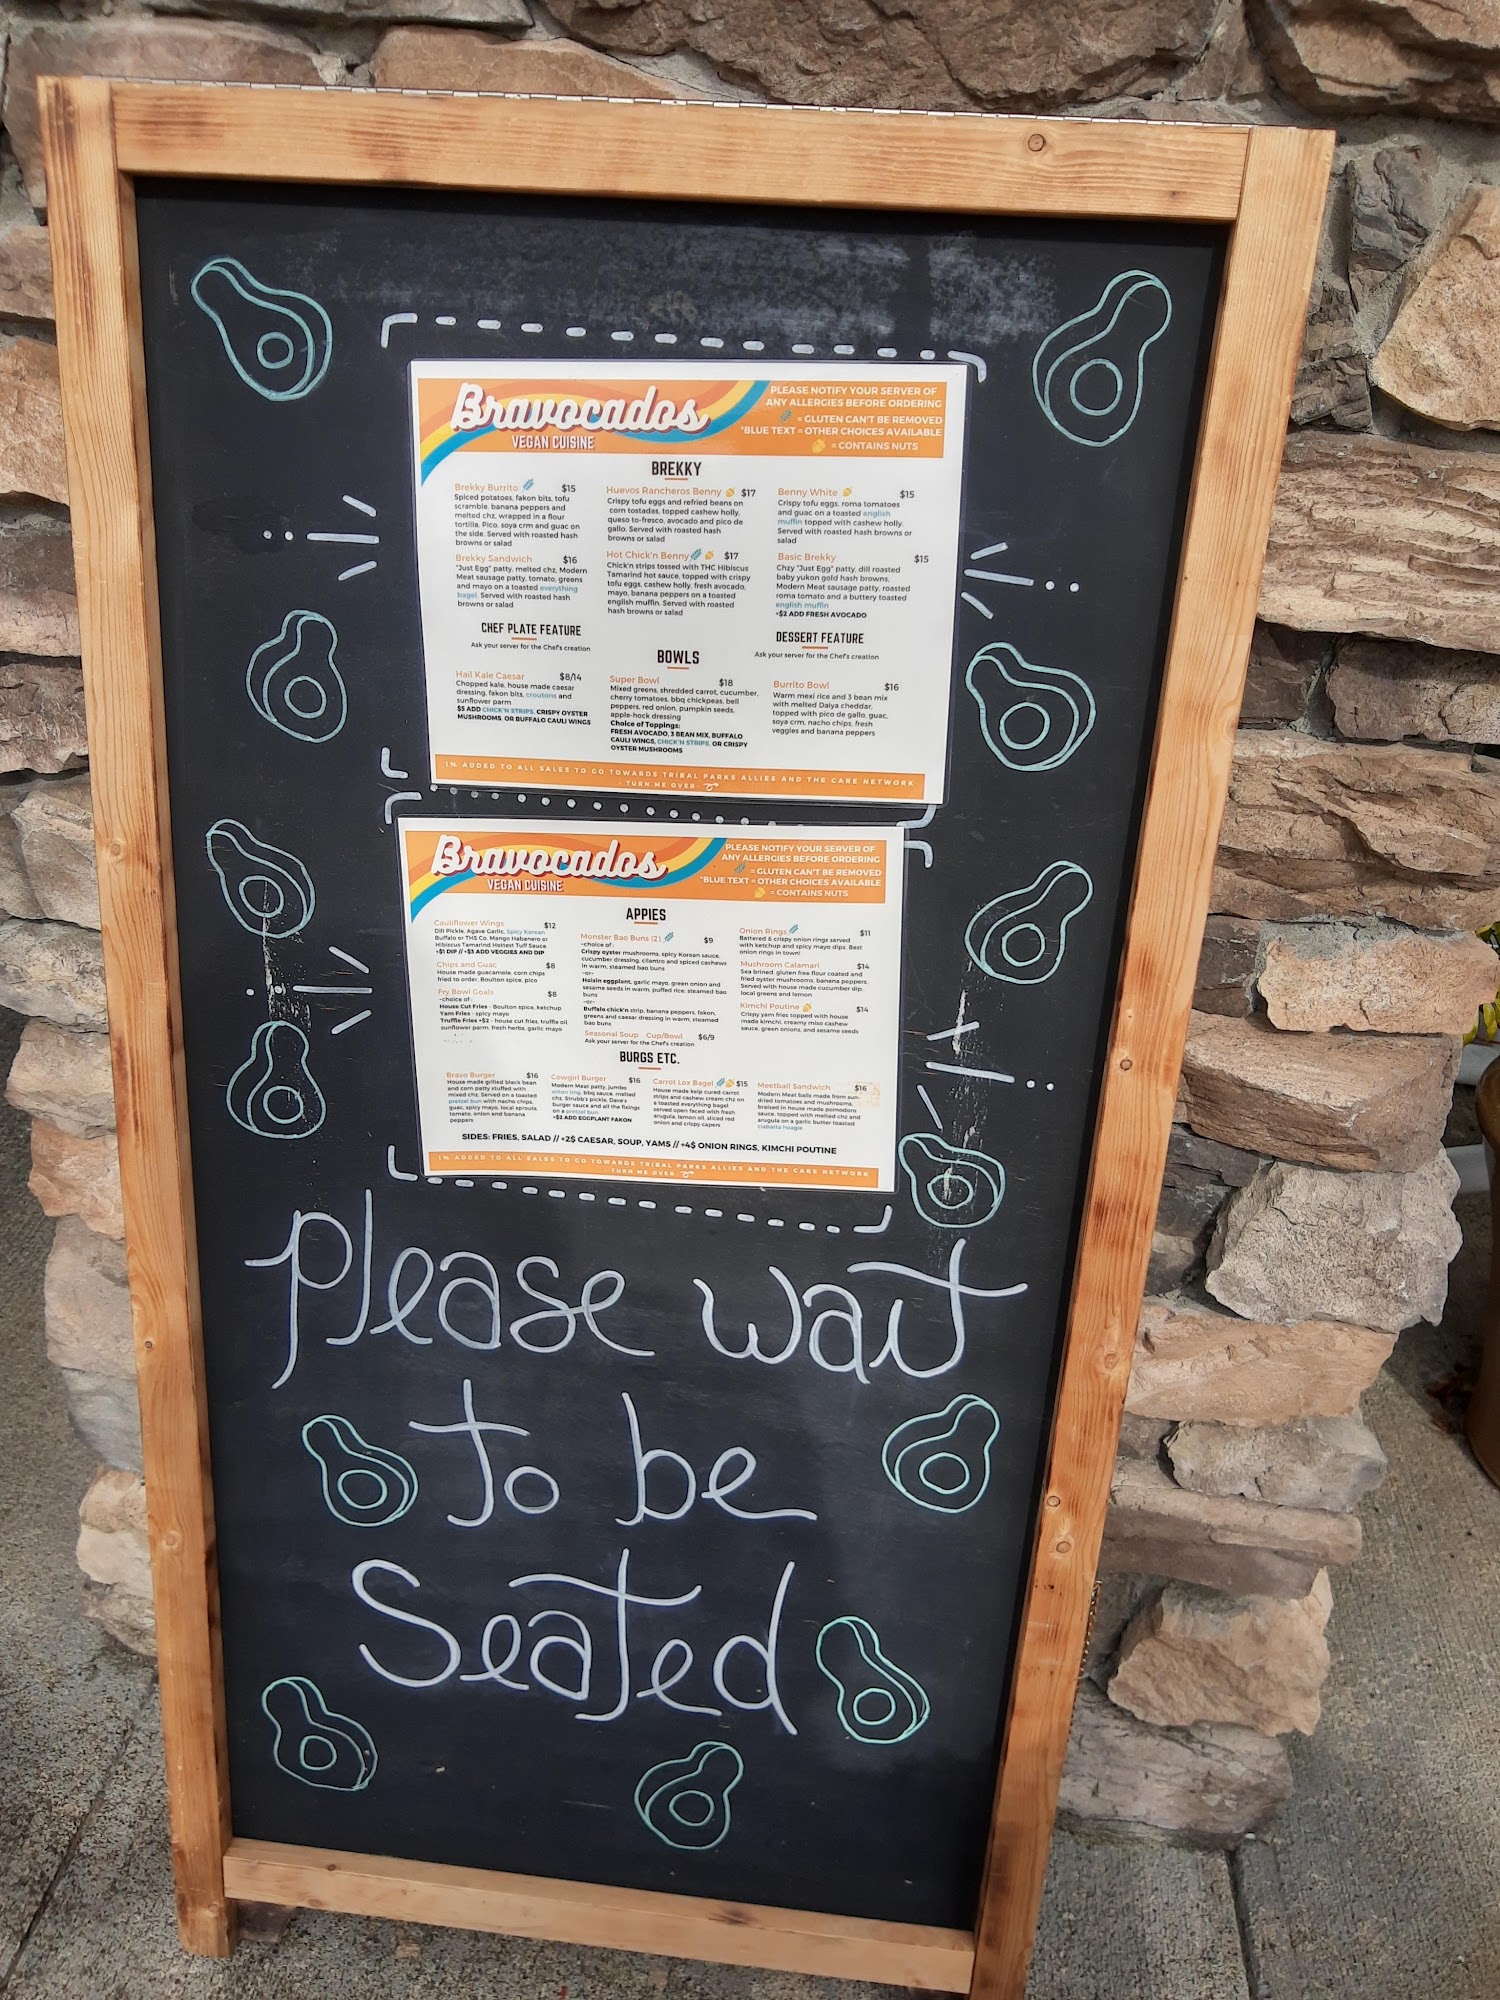 Bravocados
VEGAN CUISINE
PLEASE NOTIFY YOUR SERVER OF
ANY ALLERGIES BEFORE ORDERING
= GLUTEN CAN'T BE REMOVED
*BLUE TEXT = OTHER CHOICES AVAILABLE
= CONTAINS NUTS
BREKKY
Brekky Burrito $15
Spiced potatoes, fakon bits, tofu
scramble, banana peppers and
melted chz, wrapped in a flour
tortilla. Pico, soya crm and guac on
the side. Served with roasted hash
browns or salad
Brekky Sandwich $16
"Just Egg" patty, melted chz, Modern
Meat sausage patty, tomato, greens
and mayo on a toasted everything
bagel. Served with roasted hash
browns or salad
Huevos Rancheros Benny $17
Crispy tofu eggs and refried beans on
corn tostadas, topped cashew holly,
queso to-fresco, avocado and pico de
gallo. Served with roasted hash
browns or salad
Hot Chick'n Benny $17
Chick'n strips tossed with THC Hibiscus
Tamarind hot sauce, topped with crispy
tofu eggs, cashew holly, fresh avocado,
mayo, banana peppers on a toasted
english muffin. Served with roasted
hash browns or salad
Benny White $15
Crispy tofu eggs, roma tomatoes
and guac on a toasted english
muffin topped with cashew holly.
Served with roasted hash browns or
salad
Basic Brekky $15
Chzy "Just Egg" patty, dill roasted
baby yukon gold hash browns,
Modern Meat sausage patty, roasted
roma tomato and a buttery toasted
english muffin
+$2 ADD FRESH AVOCADO
CHEF PLATE FEATURE
Ask your server for the Chef's creation
DESSERT FEATURE
Ask your server for the Chef's creation
BOWLS
Hail Kale Caesar $8/14
Chopped kale, house made caesar
dressing, fakon bits, croutons and
sunflower parm
$5 ADD CHICK'N STRIPS, CRISPY OYSTER
MUSHROOMS, OR BUFFALO CAULI WINGS
Super Bowl $18
Mixed greens, shredded carrot, cucumber,
cherry tomatoes, bbq chickpeas, bell
peppers, red onion, pumpkin seeds,
apple-hock dressing
Choice of Toppings:
FRESH AVOCADO, 3 BEAN MIX, BUFFALO
CAULI WINGS, CHICK'N STRIPS, OR CRISPY
OYSTER MUSHROOMS
Burrito Bowl $16
Warm mexi rice and 3 bean mix
with melted Daiya cheddar,
topped with pico de gallo, guac,
soya crm, nacho chips, fresh
veggies and banana peppers
1% ADDED TO ALL SALES TO GO TOWARDS TRIBAL PARKS ALLIES AND THE CARE NETWORK
- TURN ME OVER-
Bravocados
VEGAN CUISINE
PLEASE NOTIFY YOUR SERVER OF
ANY ALLERGIES BEFORE ORDERING
= GLUTEN CAN'T BE REMOVED
*BLUE TEXT = OTHER CHOICES AVAILABLE
= CONTAINS NUTS
APPIES
Cauliflower Wings $12
Dill Pickle, Agave Garlic, Spicy Korean
Buffalo or THS Co. Mango Habanero or
Hibiscus Tamarind Hottest Tuff Sauce
+$1 DIP // +$3 ADD VEGGIES AND DIP
Chips and Guac $8
House made guacamole, corn chips
fried to order, Boulton spice, pico
Fry Bowl Goals $8
-choice of :
House Cut Fries - Boulton spice, ketchup
Yam Fries - spicy mayo
Truffle Fries +$2 - house cut fries, truffle oil,
sunflower parm, fresh herbs, garlic mayo
Monster Bao Buns (2) $9
-choice of :
Crispy oyster mushrooms, spicy Korean sauce,
cucumber dressing, cilantro and spiced cashews
in warm, steamed bao buns
-or-
Hoisin eggplant, garlic mayo, green onion and
sesame seeds in warm, puffed rice, steamed bao
buns
-or-
Buffalo chick'n strip, banana peppers, fakon,
greens and caesar dressing in warm, steamed
bao buns
Seasonal Soup Cup/Bowl $6/9
Ask your server for the Chef's creation
Onion Rings $11
Battered & crispy onion rings served
with ketchup and spicy mayo dips. Best
onion rings in town!
Mushroom Calamari $14
Sea brined, gluten free flour coated and
fried oyster mushrooms, banana peppers.
Served with house made cucumber dip,
local greens and lemon
Kimchi Poutine $14
Crispy yam fries topped with house
made kimchi, creamy miso cashew
sauce, green onions, and sesame seeds
BURGS ETC.
Bravo Burger $16
House made grilled black bean
and corn patty stuffed with
mixed chz. Served on a toasted
pretzel bun with nacho chips,
guac, spicy mayo, local sprouts,
tomato, onion and banana
peppers
Cowgirl Burger $16
Modern Meat patty, jumbo
onion ring, bbq sauce, melted
chz, Strubb's pickle, Dave's
burger sauce and all the fixings
on a pretzel bun
+$2 ADD EGGPLANT FAKON
Carrot Lox Bagel $15
House made kelp cured carrot
strips and cashew cream chz on
a toasted everything bagel
served open faced with fresh
arugula, lemon oil, sliced red
onion and crispy capers
Meetball Sandwich $16
Modern Meat balls made from sun-
dried tomatoes and mushrooms,
braised in house made pomodoro
sauce, topped with melted chz and
arugula on a garlic butter toasted
ciabatta hoagie
SIDES: FRIES, SALAD // +2$ CAESAR, SOUP, YAMS // +4$ ONION RINGS, KIMCHI POUTINE
1% ADDED TO ALL SALES TO GO TOWARDS TRIBAL PARKS ALLIES AND THE CARE NETWORK
- TURN ME OVER-
Please wait
to be
Seated